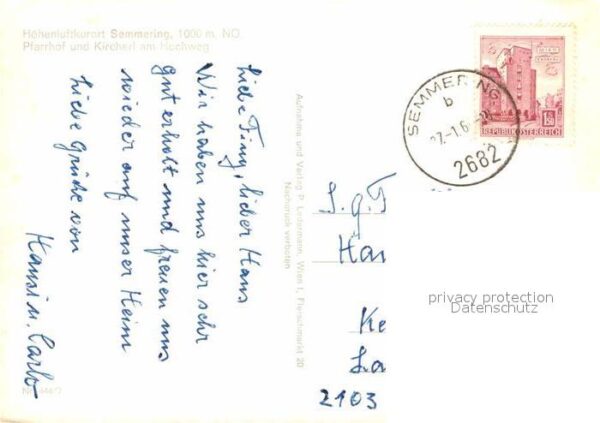 Höhenluftkurort Semmering, 1000 m, NÖ.
Pfarrhof und Kircherl am Hochweg
Liebe Finy, lieber Hans
Wir haben uns hier sehr
gut erholt und freuen uns
wieder auf unser Heim
Liebe Grüße von
Hansi u. Carlo
Aufnahme und Verlag P. Ledermann, Wien I, Fleischmarkt 20
Nachdruck verboten
SEMMERING
b
2682
REPUBLIK ÖSTERREICH
1.50
S.g.F
Han
Ke
La
2103
privacy protection
Datenschutz